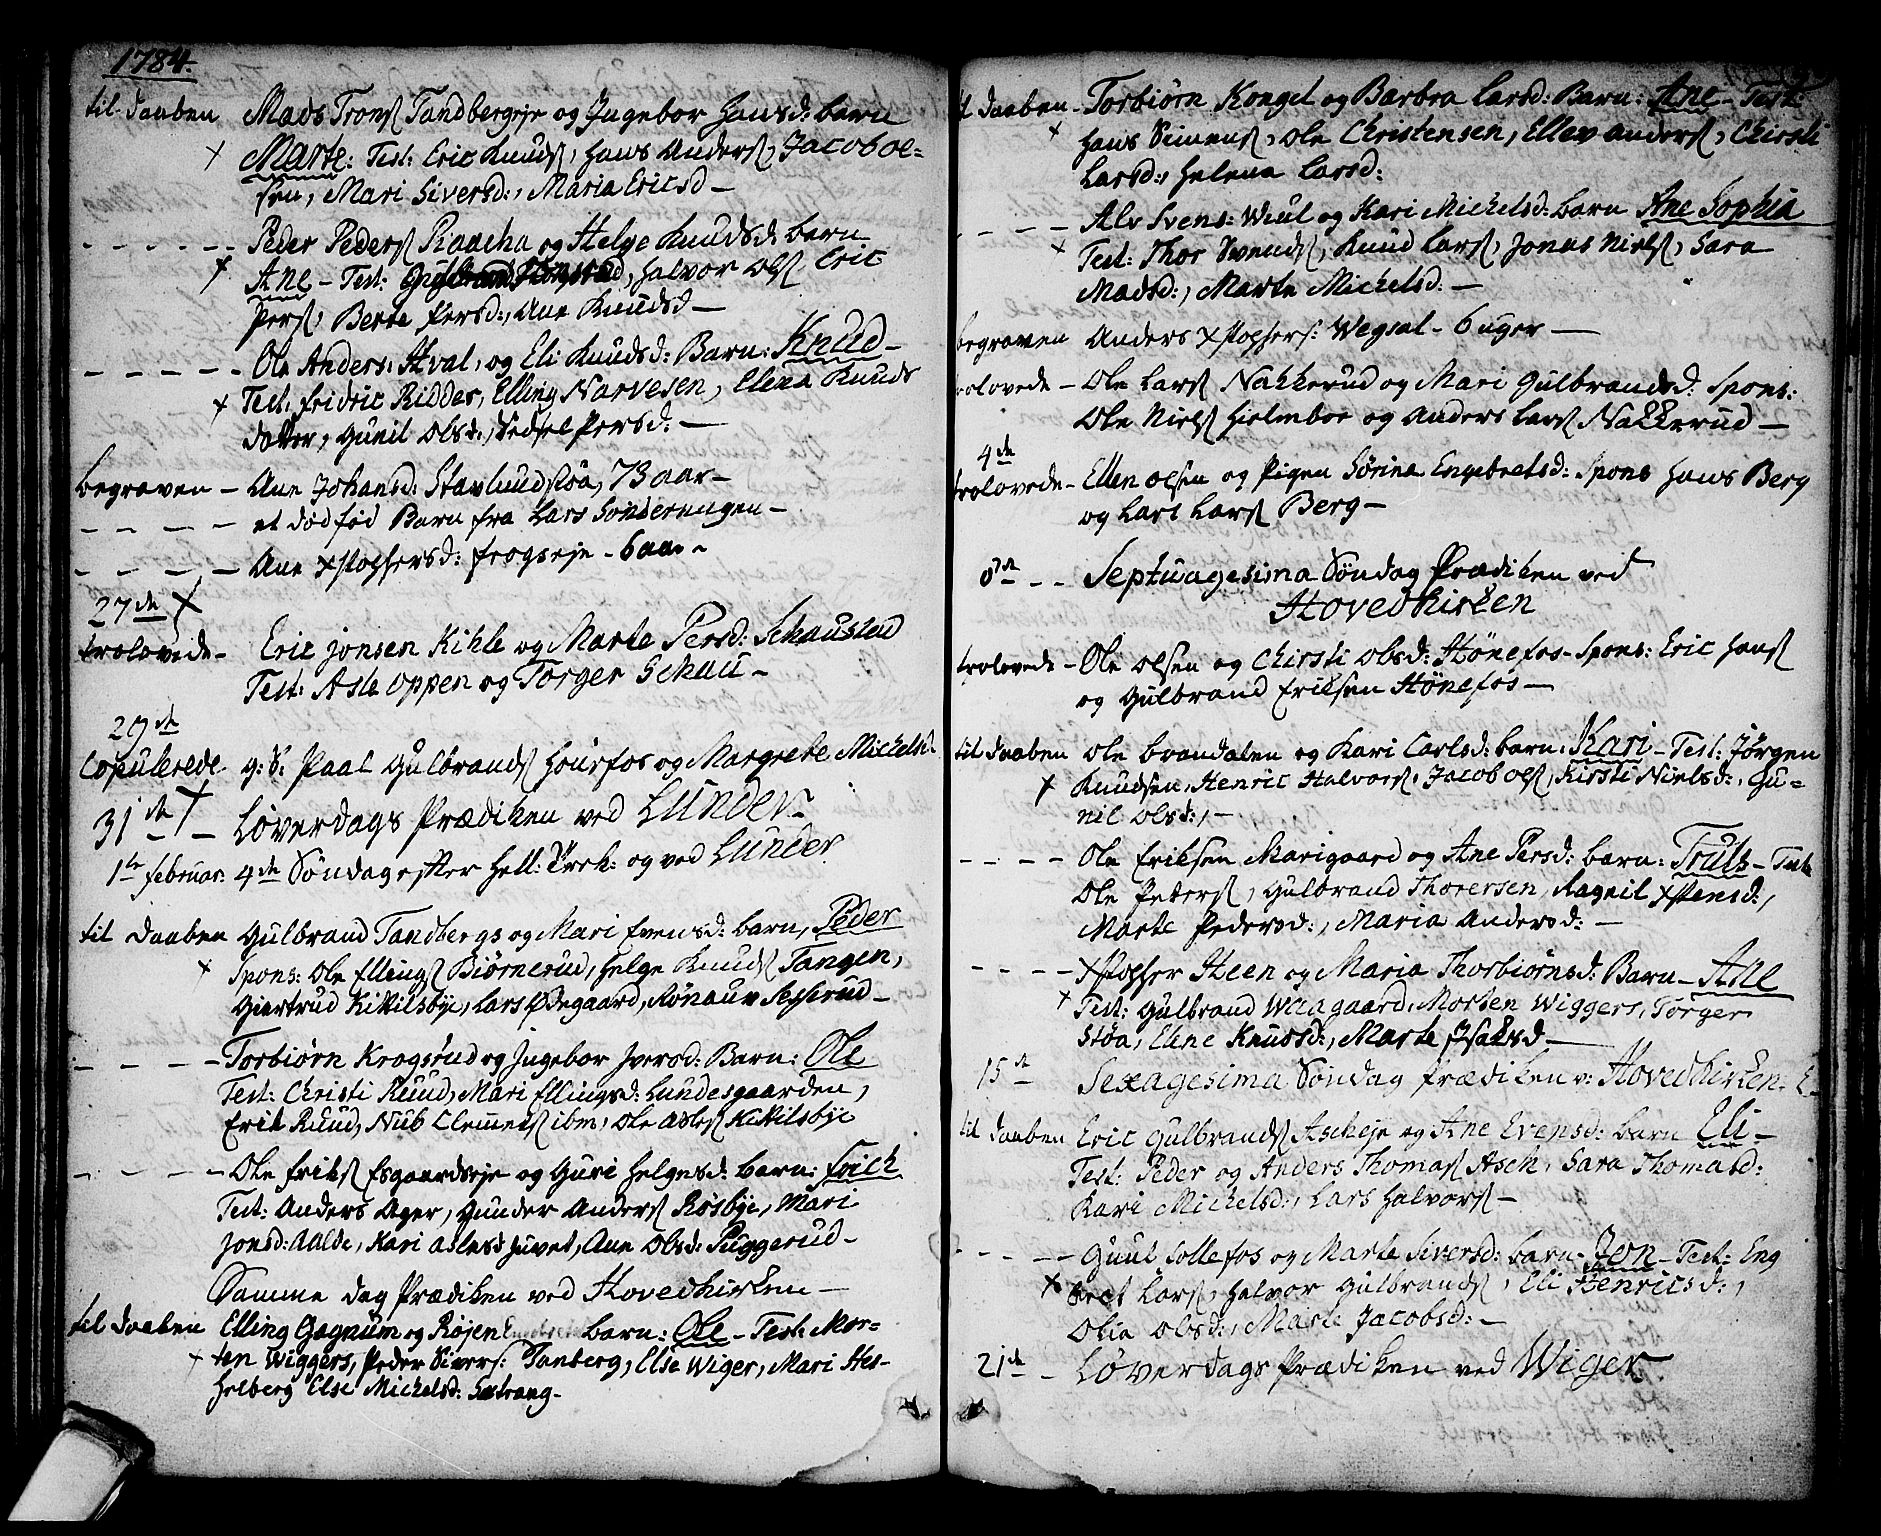 1784.
til daaben Mads Trons Tandbergeje og Ingebor Hansd: barn
Marte: Test: Eric Knuds, Hans Anders, Jacob ol=
sen, Mari Siversd:, Maria Ericsd —
Peder Peders og Helge Knudsd: barn
Ane — Test: Halvor Ols, Eric
Pers, Berte Persd:, Ane Knudsd —
Ole Anders: Hval, og Eli Knudsd: Barn: Knud —
Test: Fridric Ridder, Elling Narvesen, Elena Knuds
datter, Gunil Olsd:, Sedsel Persd: —
begraven — Ane Johansd: Stavlundstøa, 73 aar —
et dødfød Barn fra Lars Sønderengen —
Ane Xstophersd: Frogseje — 6 aar
27de
trolovede — Eric Jonsen Kihle og Marte Persd: Schaustad
Test: Asle Oppen og Torger Schau —
29de
Copulerede g: S: Paal Gulbrands Hønefos og Margrete Michelsd
31de — Løverdags Prædiken ved Lunder —
1te Februar: 4de Søndag efter Hell: Trek: og ved Lunder
til daaben Gulbrand Tandbergs og Mari Evensd: barn, Peder
Spons: Ole Ellings Biørnerud, Helge Knuds Tangen,
Giertrud Kittilsbye, Lars Ødegaard, Rønauv Sesserud —
Torbiørn Krogsrud og Ingebor Iversd: Barn: Ole
Test: Christi Ruud, Mari Ellingsd: Lundesgaarden,
Erik Ruud, Nub Clemets ibm, Ole Asles Kittilsbye
Ole Eriks Esgaardseje og Guri Helgesd: barn: Erich
Test: Anders Ager, Gunder Anders Rosbye, Mari
Jonsd: Aalde, Kari Aslesd Juvet, Ane Olsd: Puggerud —
Samme dag Prædiken ved Hovedkirken —
til daaben Elling Gagnum og Røjen barn: Ole — Test: Mor=
ten Wiggers, Peder Sivers: Tanberg, Else Wiger, Mari Hes=
selberg Else Michelsd: Sætrang —
til daaben — Torbiørn Kongel og Barbra Larsd: Barn: Ane — Test:
Hans Simens, Ole Christensen, Ellev Anders, Chirsti
Larsd:, Helena Larsd:
Alv Svens: Wiul og Kari Michelsd: barn Ane Sophia
Test: Thor Svends, Knud Lars, Jonas Niels, Sara
Madsd:, Marte Michelsd: —
begraven Anders Xstophers: Wegsal — 6 uger —
trolovede — Ole Lars Nakkerud og Mari Gulbrandsd: Spons:
Ole Niels Hielmboe og Anders Lars Nakkerud —
4de
trolovede — Ellen Olsen og Pigen Sørina Engebretsd: Spons Hans Berg
og Lars Lars Berg —
8de — Septuagesima Søndag Prædiken ved
Hovedkirken
trolovede — Ole Olsen og Chirsti Olsd: Hønefos — Spons: Eric Hans
og Gulbrand Eriksen Hønefos —
til daaben Ole brandalen og Kari Carlsd: barn: Kari — Test: Jørgen
Knudsen, Henric Halvors, Jacob Ols, Kirsti Nielsd:, Gu=
nil Olsd:, —
Ole Eriksen Marigaard og Ane Persd: barn: Truls — Test
Ole Peders, Gulbrand Thoresen, Ragnil Xstensd:,
Marte Pedersd:, Maria Andersd: —
Xstopher Heen og Maria Thorbiørnsd: Barn — Ane
Test: Gulbrand Waagaard, Morten Wiggers, Torger
Støa, Elene Knudsd:, Marte Isaksd —
15de Sexagesima Søndag Prædiken v: Hovedkirken.
til daaben Eric Gulbrands Askeje og Ane Evensd: barn Eli —
Test: Peder og Anders Thomas Ask, Sara Thomasd:
Kari Michelsd:, Lars Halvors —
Guul Sollefos og Marte Siversd: barn — Jon — Test: Eng
bret Lars, Halvor Gulbrands, Eli Henricsd:,
Olia Olsd:, Marie Jacobsd: —
21de — Løverdags Prædiken ved Wiger.